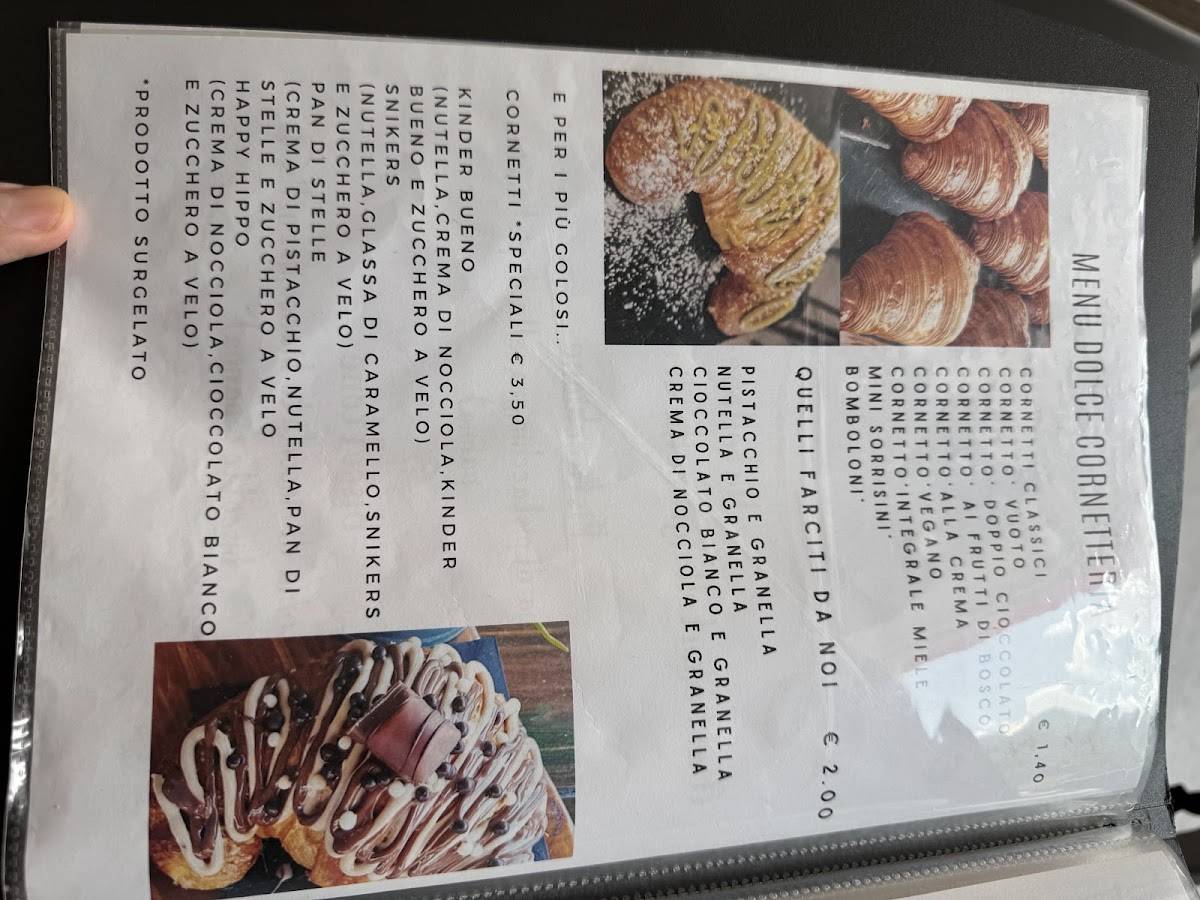 MENU DOLCE CORNETTERIA
CORNETTI CLASSICI € 1,40
CORNETTO* VUOTO
CORNETTO* DOPPIO CIOCCOLATO
CORNETTO* AI FRUTTI DI BOSCO
CORNETTO* ALLA CREMA
CORNETTO*VEGANO
CORNETTO*INTEGRALE MIELE
MINI SORRISINI*
BOMBOLONI*
QUELLI FARCITI DA NOI € 2.00
PISTACCHIO E GRANELLA
NUTELLA E GRANELLA
CIOCCOLATO BIANCO E GRANELLA
CREMA DI NOCCIOLA E GRANELLA
E PER I PIÙ GOLOSI..
CORNETTI *SPECIALI € 3,50
KINDER BUENO
(NUTELLA,CREMA DI NOCCIOLA,KINDER
BUENO E ZUCCHERO A VELO)
SNIKERS
(NUTELLA,GLASSA DI CARAMELLO,SNIKERS
E ZUCCHERO A VELO)
PAN DI STELLE
(CREMA DI PISTACCHIO,NUTELLA,PAN DI
STELLE E ZUCCHERO A VELO
HAPPY HIPPO
(CREMA DI NOCCIOLA,CIOCCOLATO BIANCO
E ZUCCHERO A VELO)
*PRODOTTO SURGELATO